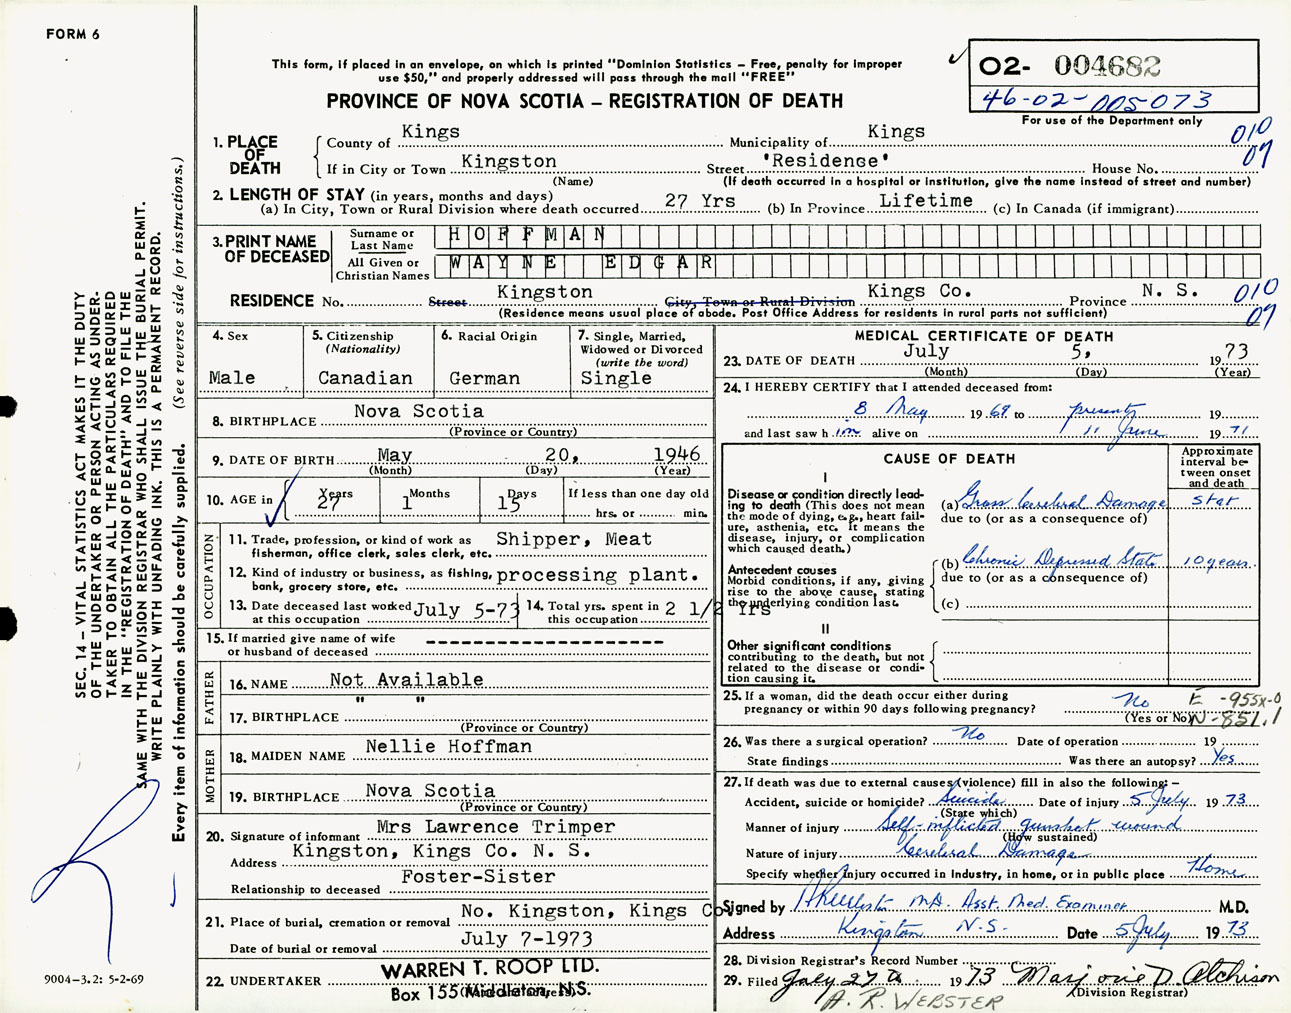 FORM 6
This form, if placed in an envelope, on which is printed "Dominion Statistics – Free, penalty for improper
use $50," and properly addressed will pass through the mail "FREE"
PROVINCE OF NOVA SCOTIA – REGISTRATION OF DEATH
O2- 004682
46-02-005073
For use of the Department only
1. PLACE OF DEATH
County of Kings Municipality of Kings 010
If in City or Town Kingston Street "Residence" House No. 07
(Name) (If death occurred in a hospital or institution, give the name instead of street and number)
2. LENGTH OF STAY (in years, months and days)
(a) In City, Town or Rural Division where death occurred 27 Yrs (b) In Province Lifetime (c) In Canada (if immigrant)
3. PRINT NAME OF DECEASED
Surname or Last Name HOFFMAN
All Given or Christian Names WAYNE EDGAR
RESIDENCE No. Street Kingston City, Town or Rural Division Kings Co. Province N. S. 010
(Residence means usual place of abode. Post Office Address for residents in rural parts not sufficient) 07
4. Sex
Male
5. Citizenship
(Nationality)
Canadian
6. Racial Origin
German
7. Single, Married,
Widowed or Divorced
(write the word)
Single
8. BIRTHPLACE Nova Scotia
(Province or Country)
9. DATE OF BIRTH May 20, 1946
(Month) (Day) (Year)
10. AGE in Years 27 Months 1 Days 15 If less than one day old
hrs. or min.
OCCUPATION
11. Trade, profession, or kind of work as Shipper, Meat
fisherman, office clerk, sales clerk, etc.
12. Kind of industry or business, as fishing, processing plant.
bank, grocery store, etc.
13. Date deceased last worked July 5-73
at this occupation
14. Total yrs. spent in 2 1/2 Yrs
this occupation
15. If married give name of wife
or husband of deceased
FATHER
16. NAME Not Available
17. BIRTHPLACE " "
(Province or Country)
MOTHER
18. MAIDEN NAME Nellie Hoffman
19. BIRTHPLACE Nova Scotia
(Province or Country)
20. Signature of informant Mrs Lawrence Trimper
Address Kingston, Kings Co. N. S.
Relationship to deceased Foster-Sister
21. Place of burial, cremation or removal No. Kingston, Kings Co.
Date of burial or removal July 7-1973
22. UNDERTAKER WARREN T. ROOP LTD.
Box 155 Middleton, N.S.
MEDICAL CERTIFICATE OF DEATH
23. DATE OF DEATH July 5, 1973
(Month) (Day) (Year)
24. I HEREBY CERTIFY that I attended deceased from:
8 May 1969 to present 19
and last saw him alive on 11 June 1971
CAUSE OF DEATH
Approximate interval between onset and death
I
Disease or condition directly leading to death (This does not mean the mode of dying, e.g., heart failure, asthenia, etc. It means the disease, injury, or complication which caused death.)
(a) Gross Cerebral Damage stat
due to (or as a consequence of)
Antecedent causes
Morbid conditions, if any, giving rise to the above cause, stating the underlying condition last.
(b) Chronic Depressed State 10 years
due to (or as a consequence of)
(c)
II
Other significant conditions
contributing to the death, but not related to the disease or condition causing it.
25. If a woman, did the death occur either during
pregnancy or within 90 days following pregnancy? No
(Yes or No)
E -955X-0
N-851.1
26. Was there a surgical operation? No Date of operation 19
State findings Was there an autopsy? Yes
27. If death was due to external causes (violence) fill in also the following:–
Accident, suicide or homicide? Suicide Date of injury 5 July 1973
(State which)
Manner of injury Self-inflicted gunshot wound
(How sustained)
Nature of injury Cerebral Damage
Specify whether injury occurred in industry, in home, or in public place Home
Signed by MD. Asst. Med. Examiner M.D.
Address Kingston N.S. Date 5 July 1973
28. Division Registrar's Record Number
29. Filed July 27th 1973 Marjorie D. Atchison
(Division Registrar)
A. R. WEBSTER
SEC. 14 – VITAL STATISTICS ACT MAKES IT THE DUTY
OF THE UNDERTAKER OR PERSON ACTING AS UNDER-
TAKER TO OBTAIN ALL THE PARTICULARS REQUIRED
IN THE "REGISTRATION OF DEATH" AND TO FILE THE
SAME WITH THE DIVISION REGISTRAR WHO SHALL ISSUE THE BURIAL PERMIT.
WRITE PLAINLY WITH UNFADING INK. THIS IS A PERMANENT RECORD.
Every item of information should be carefully supplied. (See reverse side for instructions.)
9004-3.2: 5-2-69